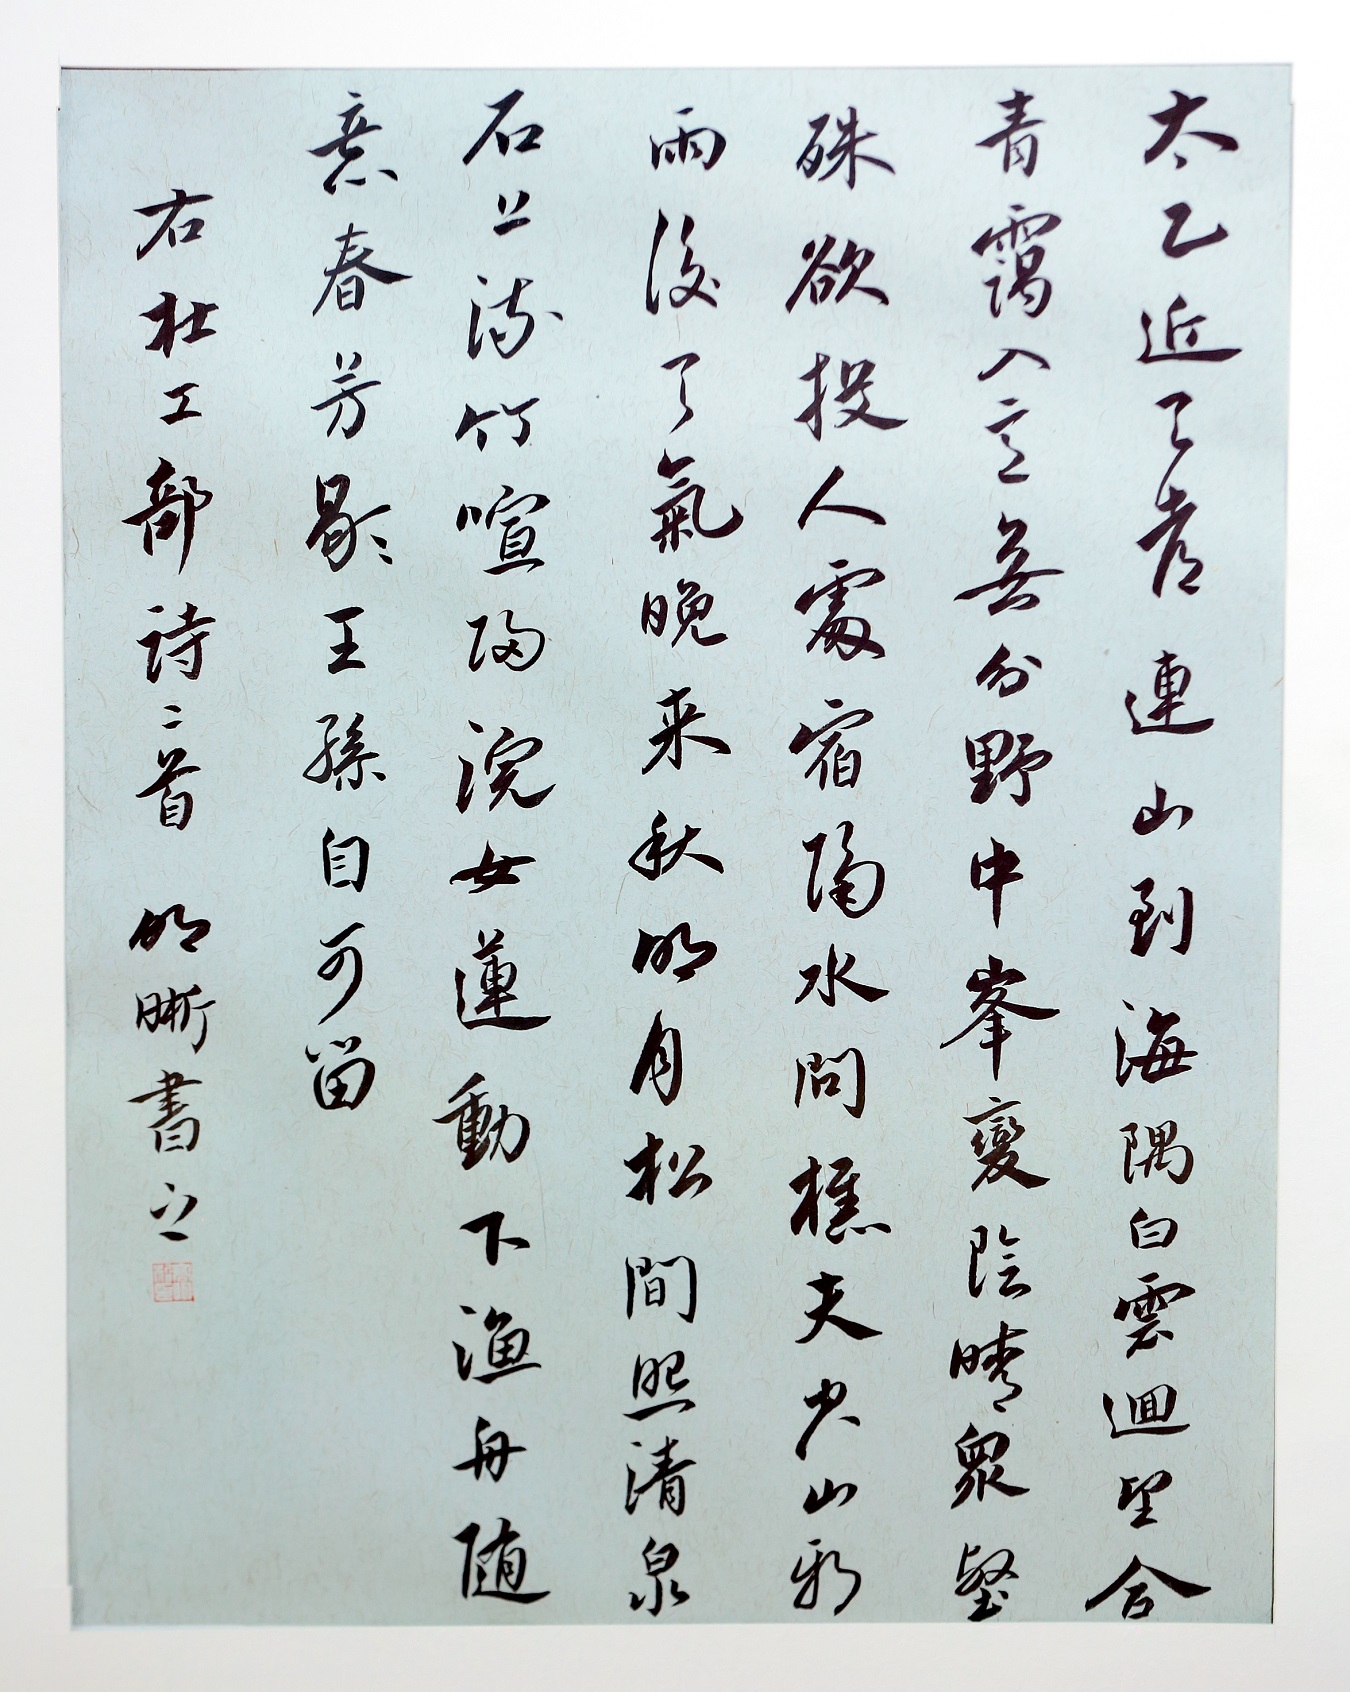 太乙近天都連山到海隅白雲迴望合
青靄入看無分野中峯變陰晴衆壑
殊欲投人處宿隔水問樵夫空山新
雨後天氣晚来秋明月松間照清泉
石上流竹喧歸浣女蓮動下漁舟随
意春芳歇王孫自可留
右杜工部詩二首 明晰書之